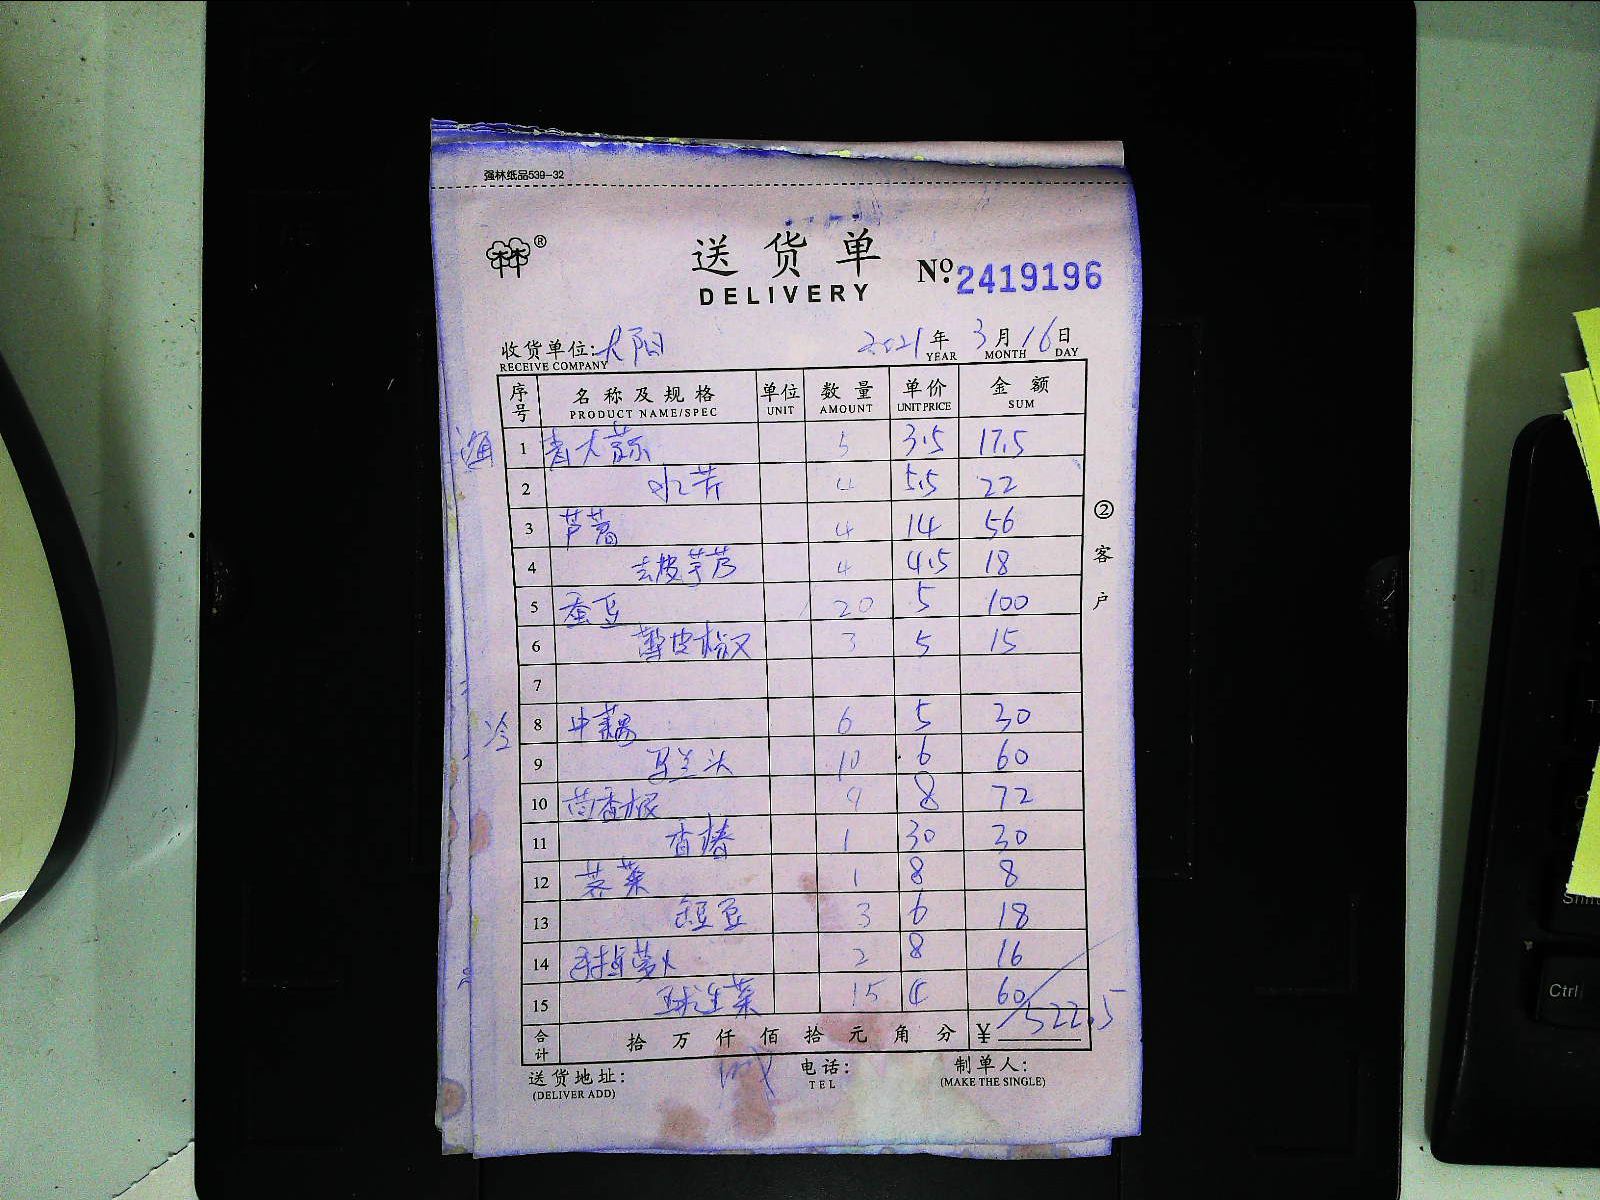 强林纸品539-32
林林®
送货单
DELIVERY
№ 2419196
收货单位: 大阳 2021年 3月 16日
RECEIVE COMPANY YEAR MONTH DAY
序号 名称及规格 单位 数量 单价 金额
PRODUCT NAME/SPEC UNIT AMOUNT UNIT PRICE SUM
1 青大蒜 5 3.5 17.5
2 水芹 4 5.5 22
3 芦蒿 4 14 56
4 去皮芋艿 4 4.5 18
5 蚕豆 20 5 100
6 薄皮椒 3 5 15
7
冷 8 中藕 6 5 30
9 马兰头 10 6 60
10 茴香根 9 8 72
11 香椿 1 30 30
12 荠菜 1 8 8
13 豆 3 6 18
14 萝卜 2 8 16
15 球生菜 15 4 60
合计 拾 万 仟 佰 拾 元 角 分 ¥ 522.5
②客户
送货地址: 电话: 制单人:
(DELIVER ADD) TEL (MAKE THE SINGLE)
Ctrl